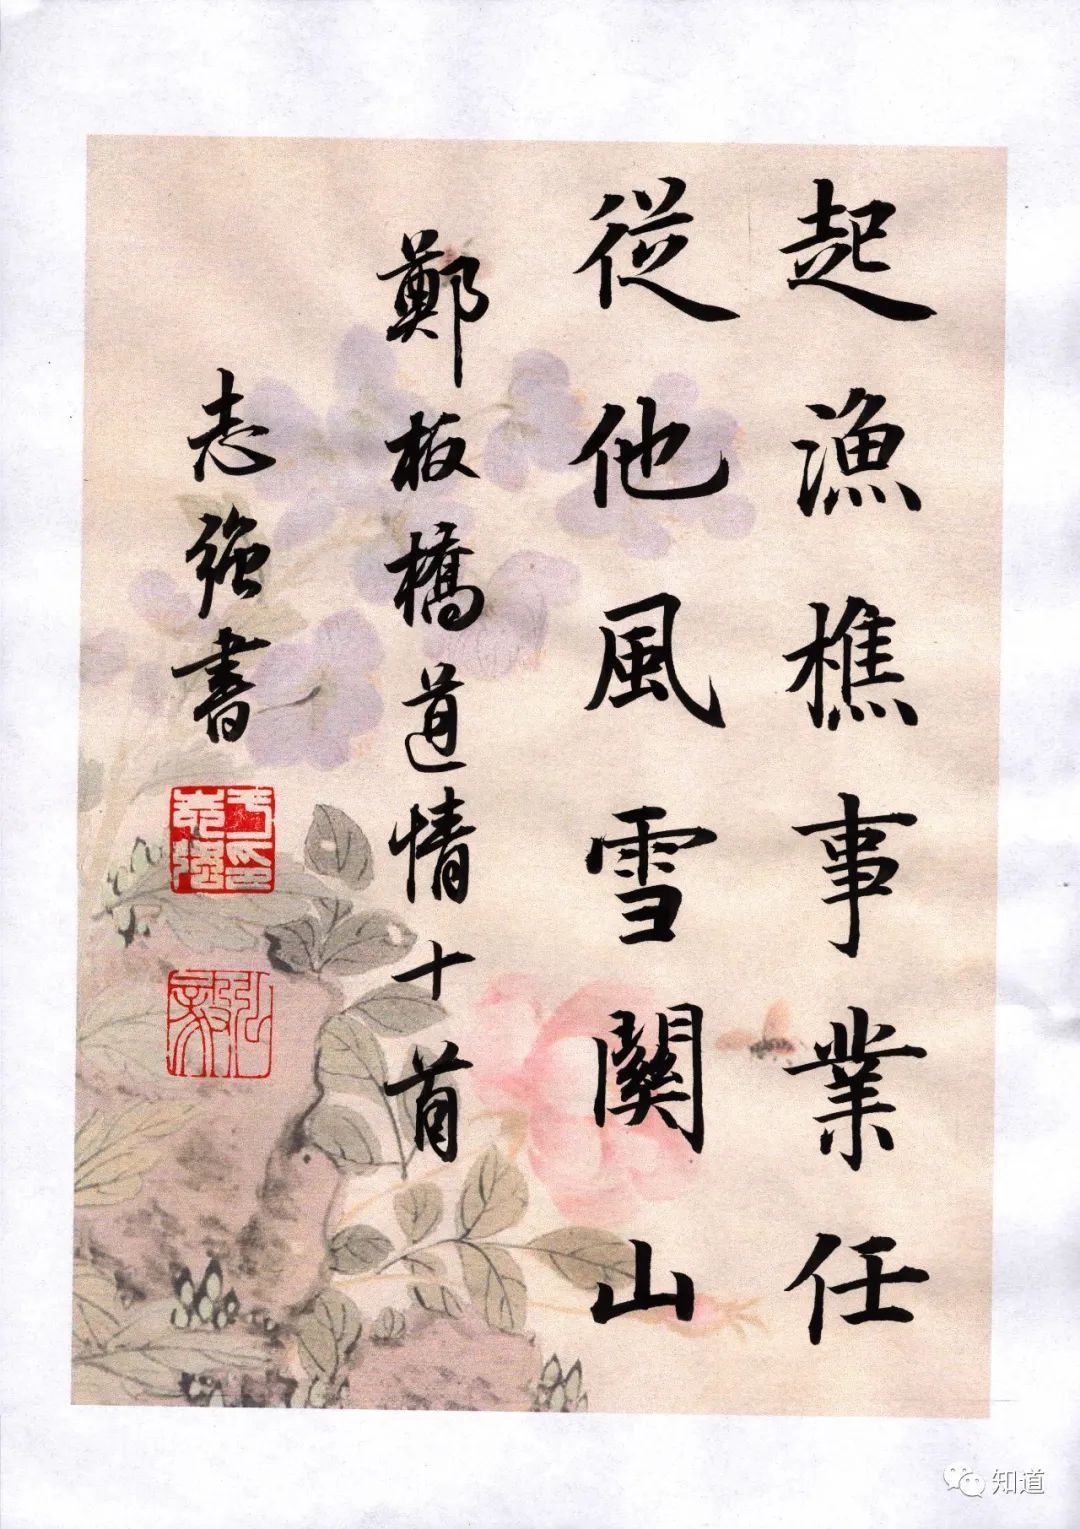 起漁樵事業任
從他風雪關山
鄭板橋道情十首
志強書
弘毅
知道